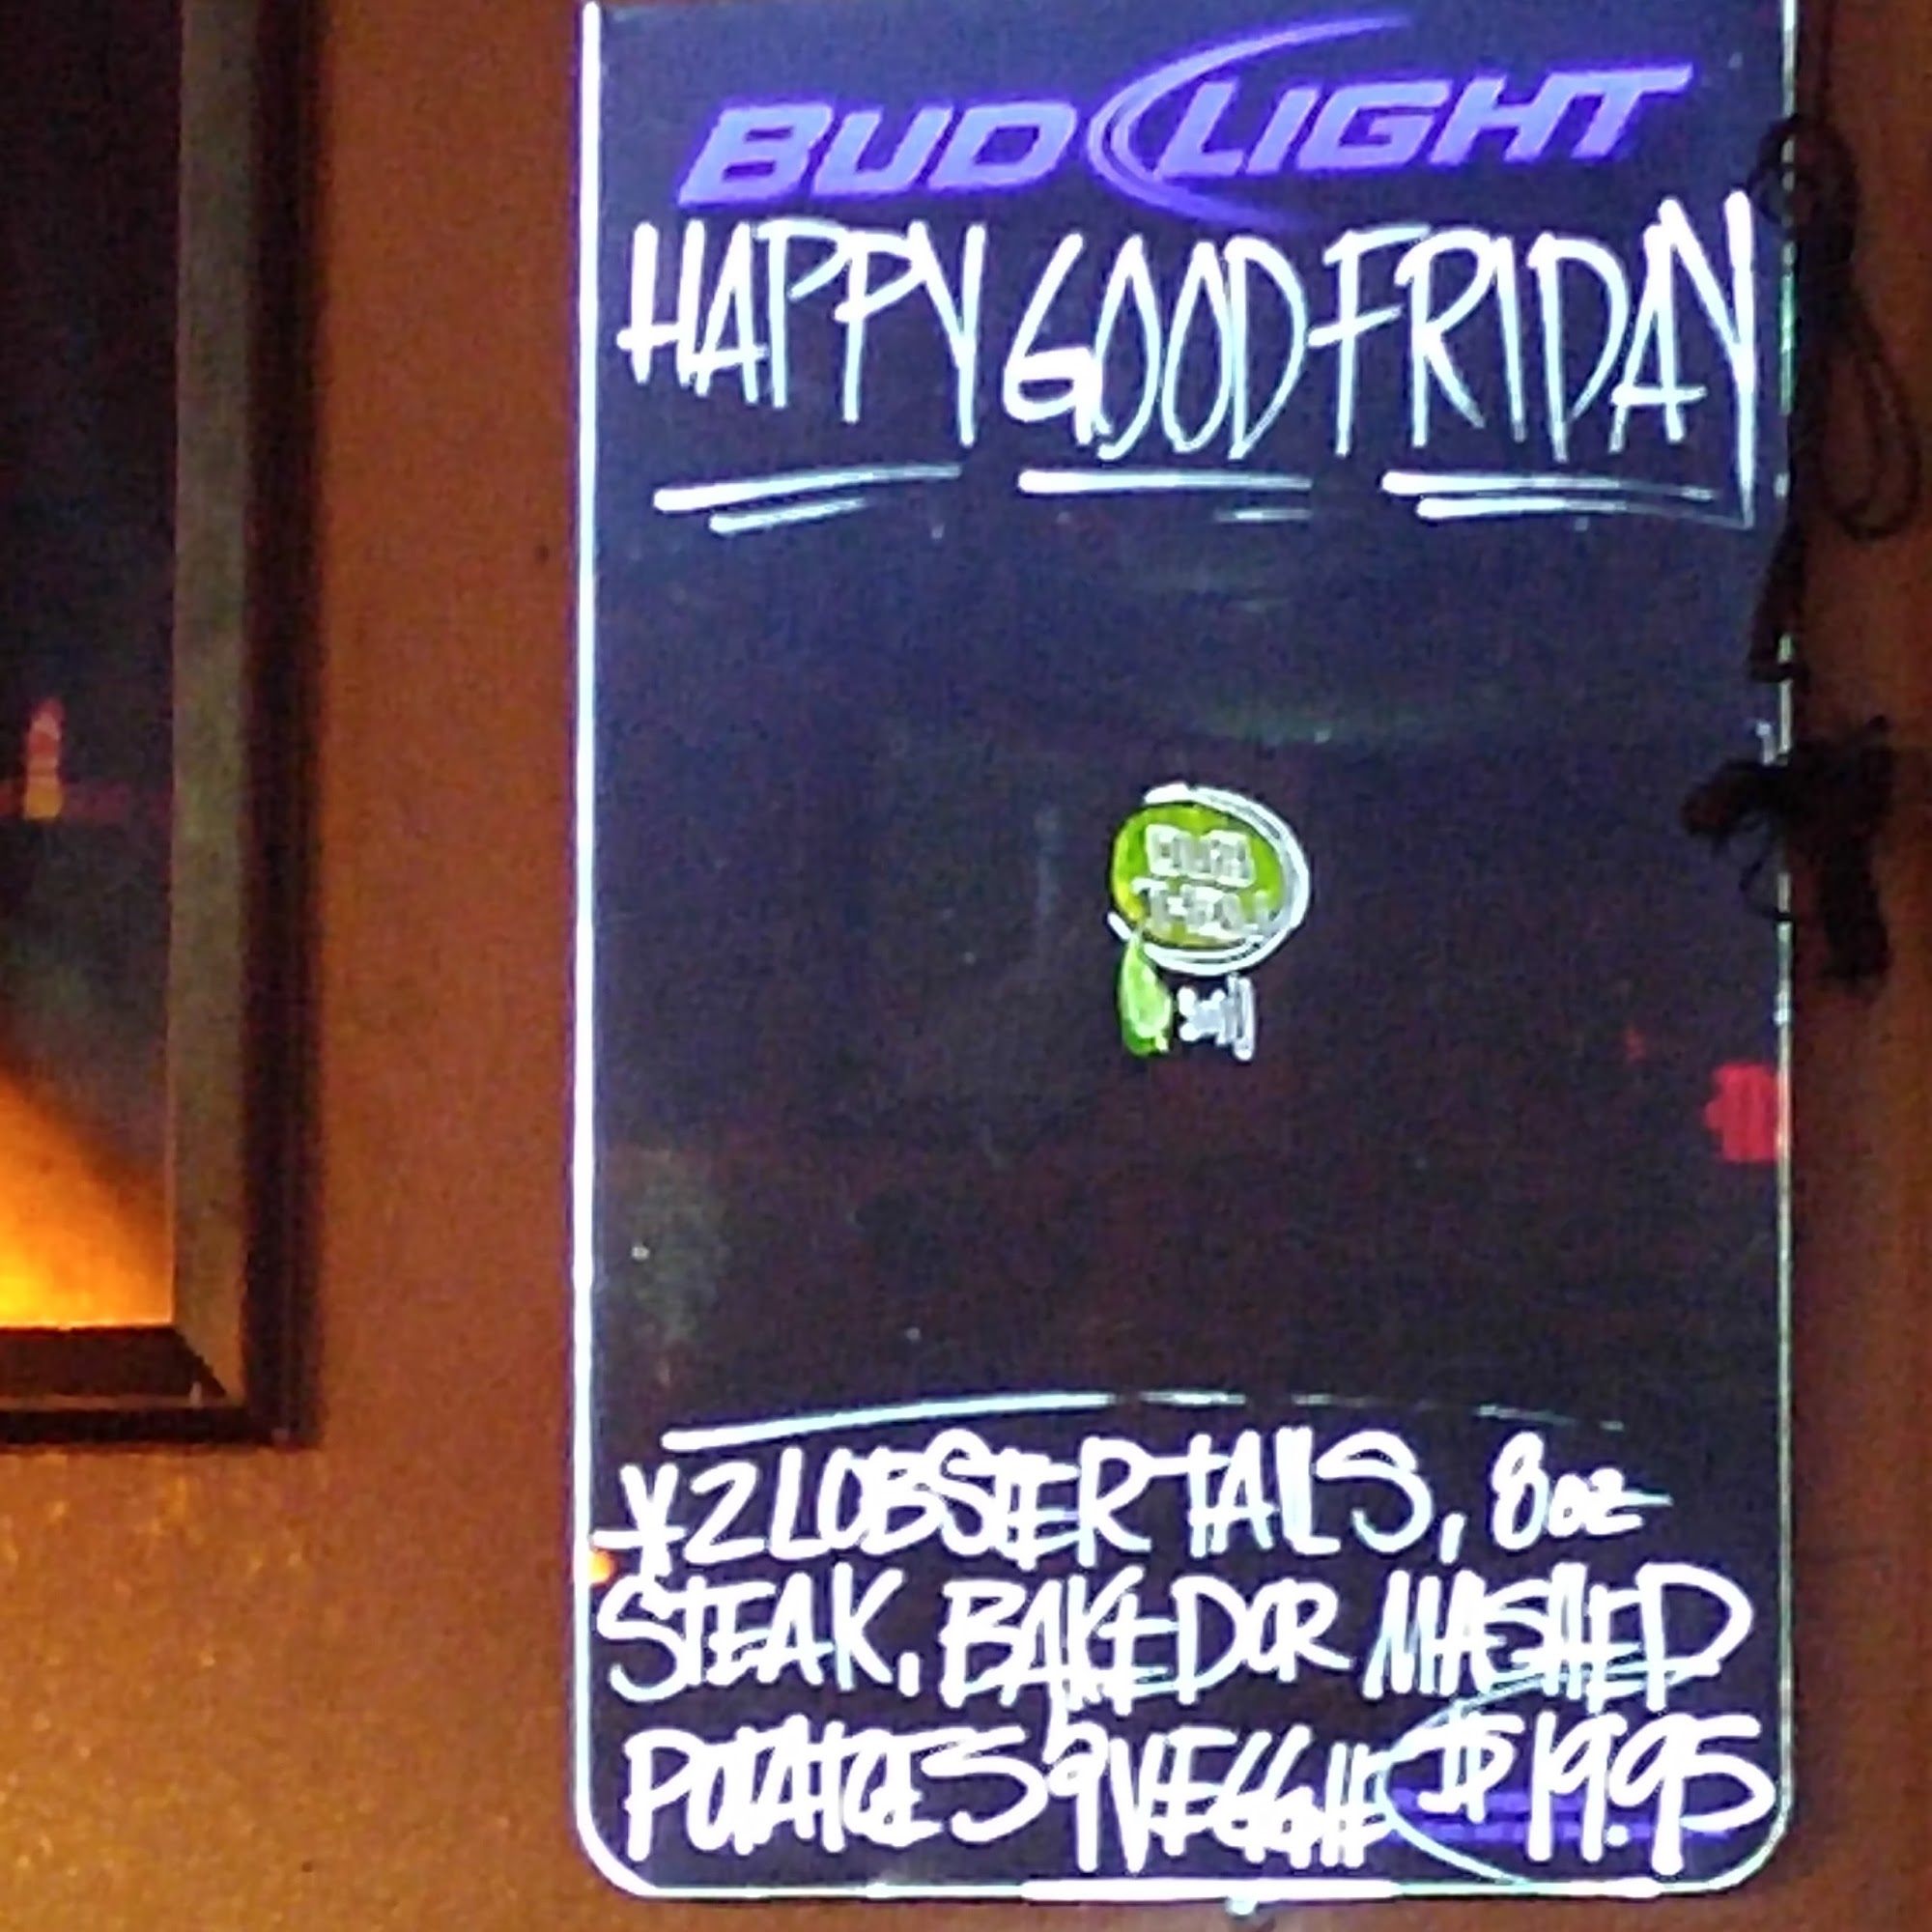 BUD LIGHT
HAPPY GOOD FRIDAY
* 2 LOBSTER TAILS, 8oz
STEAK, BAKED OR MASHED
POTATOES & VEGGIE $19.95